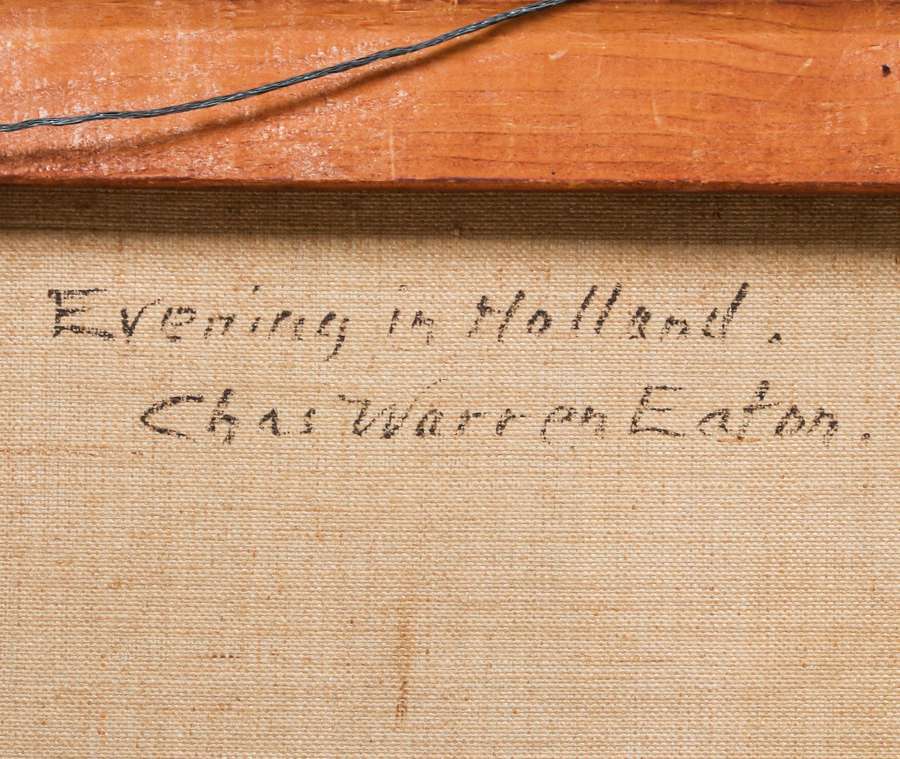 Evening in Holland.
Chas Warren Eaton.